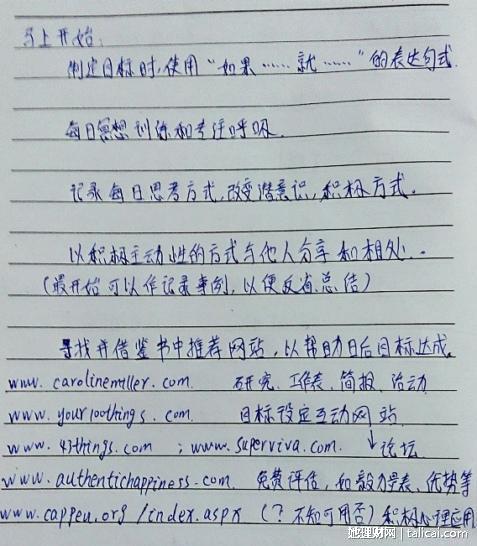 马上开始:
制定目标时,使用“如果……就……”的表达句式.
每日冥想训练和专注呼吸.
记录每日思考方式,改变潜意识,积极方式.
以积极主动性的方式与他人分享和相处.
(最开始可以作记录事例,以便反省总结)
寻找并借鉴书中推荐网站,以帮助日后目标达成.
www.carolinemiller.com. 研究、工作表、简报、活动
www.your100things.com. 目标设定互动网站
www.43things.com ; www.superviva.com. ↓论坛
www.authentichappiness.com. 免费评估,如毅力量表、优势等
www.cappeu.org/index.aspx (?不知可用否)积极心理应用
她理财网 | talicai.com